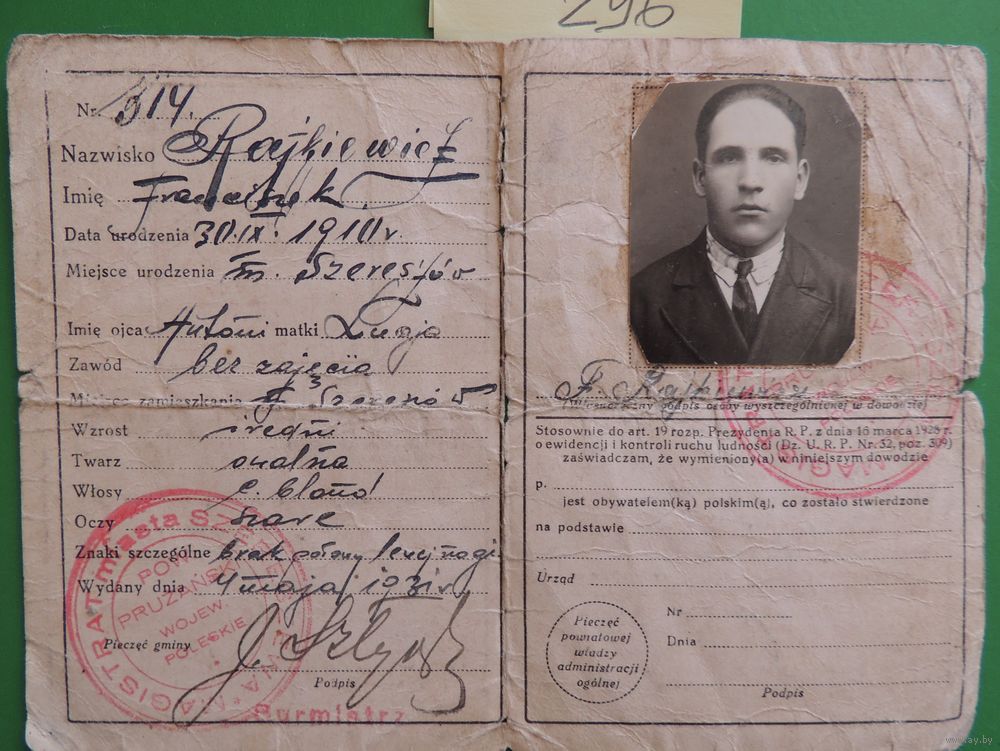 296
Nr. 314.
Nazwisko Rajkiewicz
Imię Franciszek
Data urodzenia 30.IX. 1910 r
Miejsce urodzenia m. Szereszów
Imię ojca Antoni matki Łucja
Zawód bez zajęcia
Miejsce zamieszkania Szereszów
Wzrost średni
Twarz owalna
Włosy c. blond
Oczy szare
Znaki szczególne brak lewej nogi
Wydany dnia 4 maja 1931 r.
Pieczęć gminy
Podpis
Burmistrz
MAGISTRAT miasta
POW.
PRUŻAŃSKI
WOJEW.
POLESKIE
F. Rajkiewicz
Własnoręczny podpis osoby wyszczególnionej w dowodzie
Stosownie do art. 19 rozp. Prezydenta R. P. z dnia 16 marca 1928 r.
o ewidencji i kontroli ruchu ludności (Dz. U. R. P. Nr. 32, poz. 309)
zaświadczam, że wymieniony(a) w niniejszym dowodzie
p.
jest obywatelem(ką) polskim(ą), co zostało stwierdzone
na podstawie
Urząd
Pieczęć
powiatowej
władzy
administracji
ogólnej
Nr
Dnia
Podpis
www.ay.by